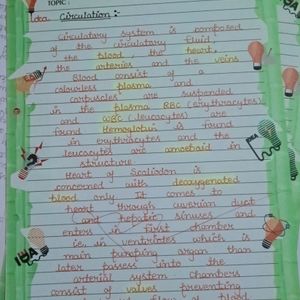 TOPIC :
Idea
Circulation :
Circulatory system is composed
of the circulatory fluid,
the blood the heart,
the arteries and the veins
Blood consist of a
colourless plasma and
corpuscles are suspended
in the plasma RBC (erythrocytes)
and WBC (leucocytes) are
found Hemoglobin is found
in erythrocytes and the
leucocytes are amoeboid in
structure.
Heart of Scoliodon is
concerned with deoxygenated
blood only. It comes to
heart through cuverian duct
and hepatic sinuses and
enters in first chamber
i.e., in ventricles which is
main pumping organ than
later passess into the
arterial system Chambers
consist of valves preventing
flow of blood
IDEA